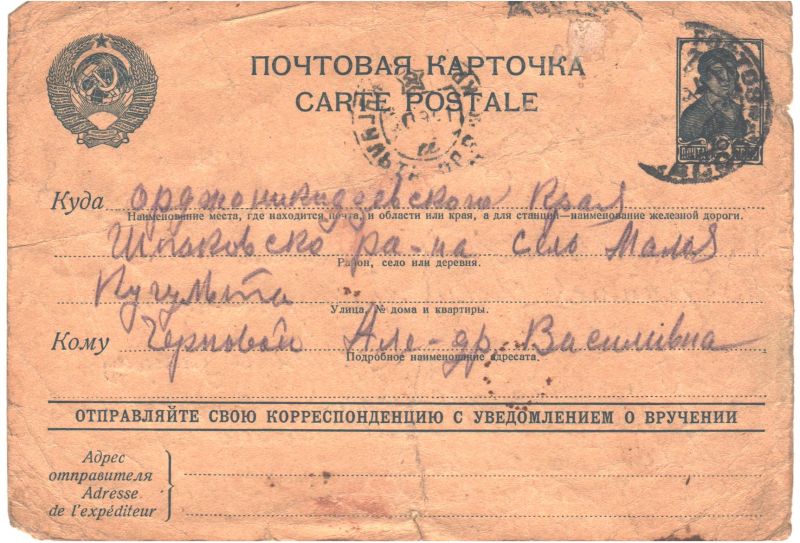 ПОЧТОВАЯ КАРТОЧКА
CARTE POSTALE
Куда Орджоникидзевского Края
Наименование места, где находится почта, и области или края, а для станций—наименование железной дороги.
Шпаковско ра-на село Малая
Район, село или деревня.
Пугульта
Улица, № дома и квартиры.
Кому Черновой Але-др. Василивна
Подробное наименование адресата.
ОТПРАВЛЯЙТЕ СВОЮ КОРРЕСПОНДЕНЦИЮ С УВЕДОМЛЕНИЕМ О ВРУЧЕНИИ
Адрес
отправителя
Adresse
de l'expéditeur